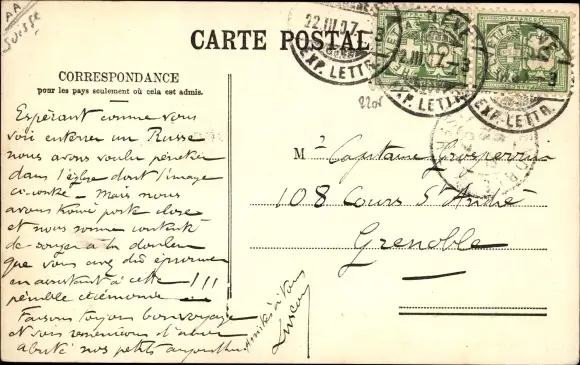 AA
Suisse
CARTE POSTALE
22.III.07
GENÈVE
EXP. LETTR.
CORRESPONDANCE
pour les pays seulement où cela est admis.
Espérant comme vous
voir enterrer un Russe
nous avons voulu pénétrer
dans l'église dont l'image
ci-contre – Mais nous
avons trouvé porte close
et nous nous
à la douleur
que vous avez dû éprouver
en assistant à cette !!!
pénible cérémonie
Faisons toujours bon voyage
et vous
nos petits aujourd'hui.
Amitiés à tous
Mr Capitaine
108 Cours St André
Grenoble